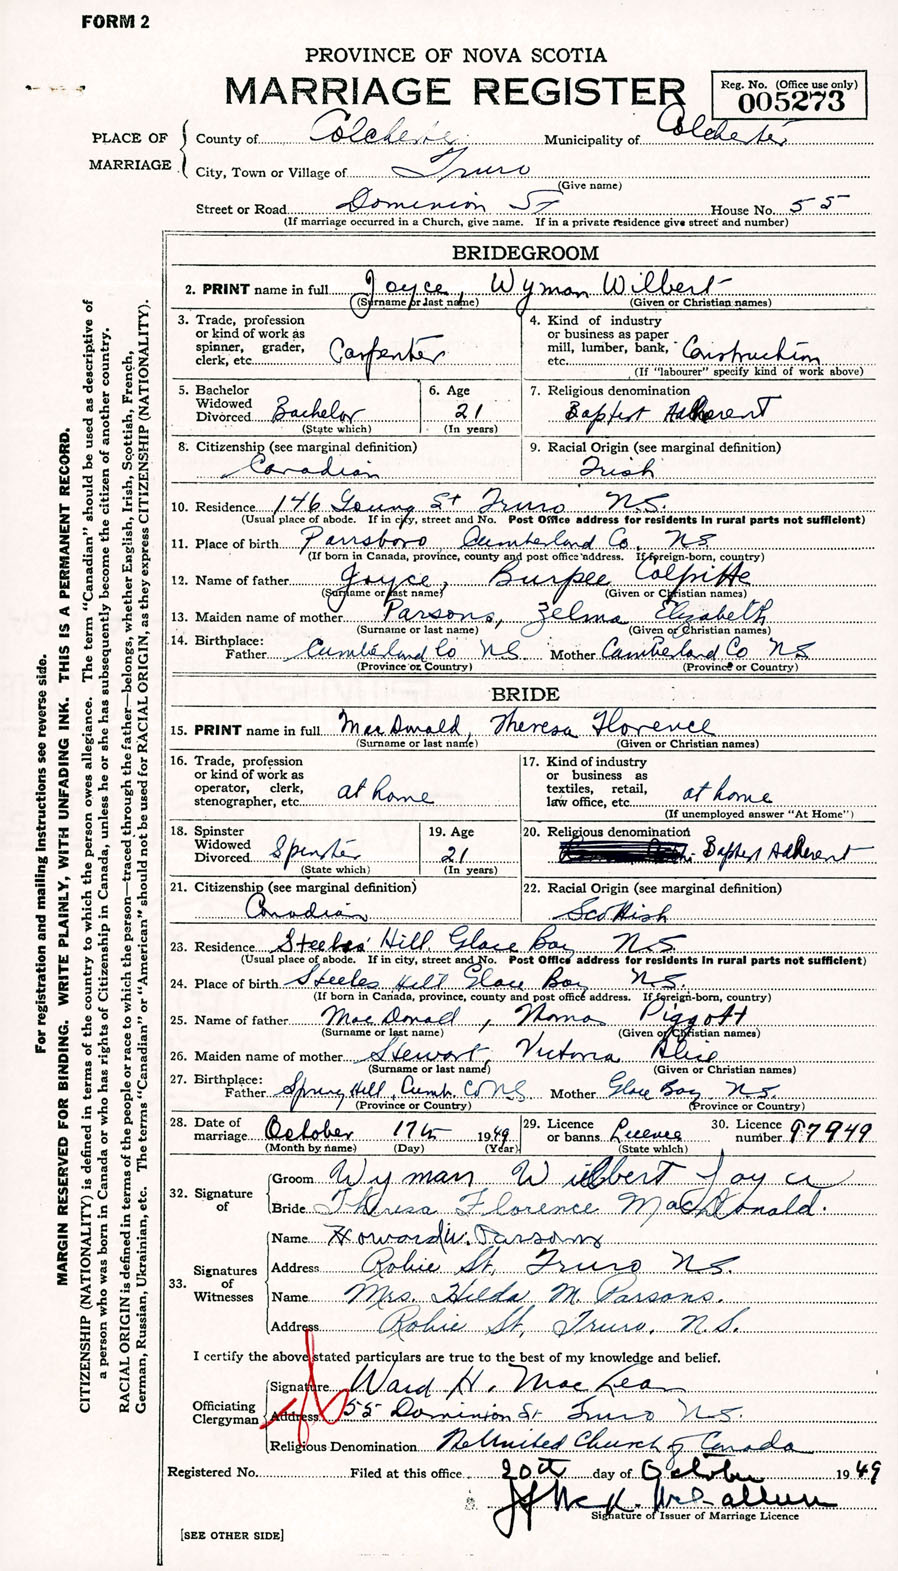 FORM 2
PROVINCE OF NOVA SCOTIA
MARRIAGE REGISTER
Reg. No. (Office use only)
005273
PLACE OF MARRIAGE
County of Colchester Municipality of Colchester
City, Town or Village of Truro
(Give name)
Street or Road Dominion St House No. 55
(If marriage occurred in a Church, give name. If in a private residence give street and number)
BRIDEGROOM
2. PRINT name in full Joyce, Wyman Wilbert
(Surname or last name) (Given or Christian names)
3. Trade, profession or kind of work as spinner, grader, clerk, etc. Carpenter
4. Kind of industry or business as paper mill, lumber, bank, etc. Construction
(If "labourer" specify kind of work above)
5. Bachelor Widowed Divorced Bachelor
(State which)
6. Age 21
(In years)
7. Religious denomination
Baptist Adherent
8. Citizenship (see marginal definition)
Canadian
9. Racial Origin (see marginal definition)
Irish
10. Residence 146 Young St Truro N.S.
(Usual place of abode. If in city, street and No. Post Office address for residents in rural parts not sufficient)
11. Place of birth Parrsboro Cumberland Co. N.S.
(If born in Canada, province, county and post office address. If foreign-born, country)
12. Name of father Joyce, Burpee Colpitte
(Surname or last name) (Given or Christian names)
13. Maiden name of mother Parsons, Zelma Elizabeth
(Surname or last name) (Given or Christian names)
14. Birthplace:
Father Cumberland Co N.S. Mother Cumberland Co N S
(Province or Country) (Province or Country)
BRIDE
15. PRINT name in full MacDonald, Theresa Florence
(Surname or last name) (Given or Christian names)
16. Trade, profession or kind of work as operator, clerk, stenographer, etc. at home
17. Kind of industry or business as textiles, retail, law office, etc. at home
(If unemployed answer "At Home")
18. Spinster Widowed Divorced Spinster
(State which)
19. Age 21
(In years)
20. Religious denomination
Baptist Adherent
21. Citizenship (see marginal definition)
Canadian
22. Racial Origin (see marginal definition)
Scottish
23. Residence Steeles' Hill Glace Bay N.S.
(Usual place of abode. If in city, street and No. Post Office address for residents in rural parts not sufficient)
24. Place of birth Steeles Hill Glace Bay N.S.
(If born in Canada, province, county and post office address. If foreign-born, country)
25. Name of father MacDonald, Thomas Piggott
(Surname or last name) (Given or Christian names)
26. Maiden name of mother Stewart, Victoria Alice
(Surname or last name) (Given or Christian names)
27. Birthplace:
Father Spring Hill, Cumb. Co N.S. Mother Glace Bay N.S.
(Province or Country) (Province or Country)
28. Date of marriage October 17th 1949
(Month by name) (Day) (Year)
29. Licence or banns Licence
(State which)
30. Licence number 97949
32. Signature of
Groom Wyman Wilbert Joyce
Bride Theresa Florence MacDonald.
33. Signatures of Witnesses
Name Howard W. Parsons
Address Robie St, Truro N.S.
Name Mrs. Hilda M. Parsons.
Address Robie St, Truro, N.S.
I certify the above stated particulars are true to the best of my knowledge and belief.
Officiating Clergyman
Signature Ward H. MacLean
Address 55 Dominion St Truro N.S.
Religious Denomination United Church of Canada
Registered No. Filed at this office 20th day of October 1949
Signature of Issuer of Marriage Licence
[SEE OTHER SIDE]
For registration and mailing instructions see reverse side.
MARGIN RESERVED FOR BINDING. WRITE PLAINLY, WITH UNFADING INK. THIS IS A PERMANENT RECORD.
CITIZENSHIP (NATIONALITY) is defined in terms of the country to which the person owes allegiance. The term "Canadian" should be used as descriptive of
a person who was born in Canada or who has rights of Citizenship in Canada, unless he or she has subsequently become the citizen of another country.
RACIAL ORIGIN is defined in terms of the people or race to which the person—traced through the father—belongs, whether English, Irish, Scottish, French,
German, Russian, Ukrainian, etc. The terms "Canadian" or "American" should not be used for RACIAL ORIGIN, as they express CITIZENSHIP (NATIONALITY).